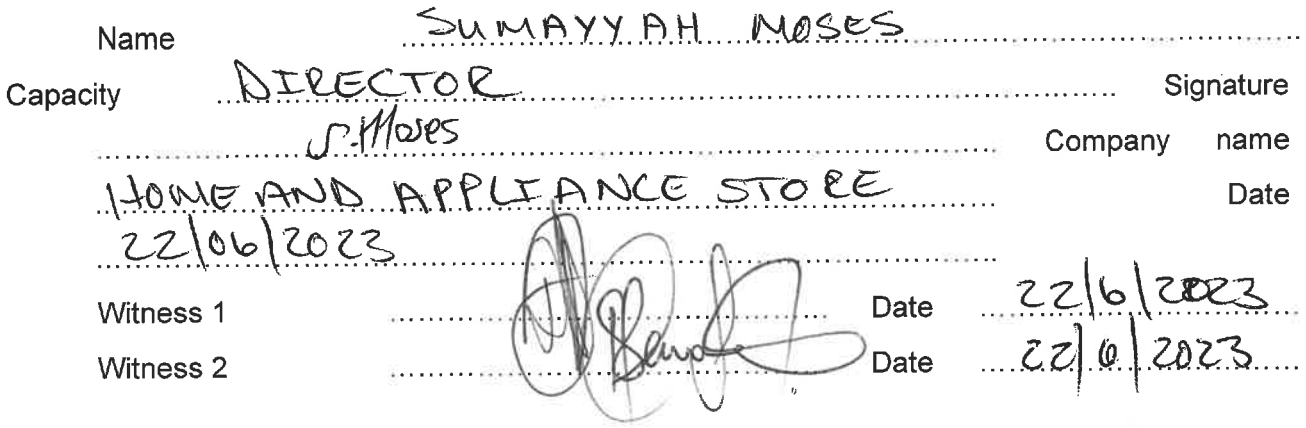 Name SUMAYYAH MOSES
Capacity DIRECTOR Signature
S. Moses Company name
HOME AND APPLIANCE STORE Date
22/06/2023
Witness 1 Date 22/6/2023
Witness 2 Date 22/6/2023